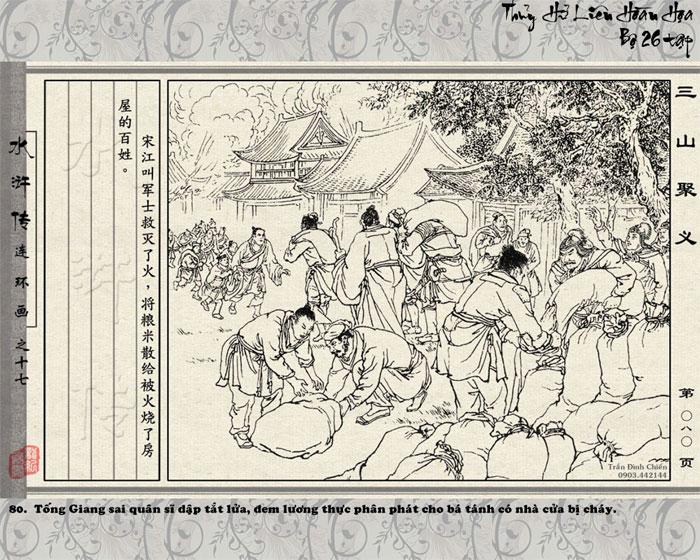 Thủy Hử Liên Hoàn Họa
Bộ 26 tập
水浒传连环画之十七
三山聚义
第〇八〇页
宋江叫军士救灭了火，将粮米散给被火烧了房
屋的百姓。
水浒传
Trần Đình Chiến
0903.442144
80. Tống Giang sai quân sĩ dập tắt lửa, đem lương thực phân phát cho bá tánh có nhà cửa bị cháy.